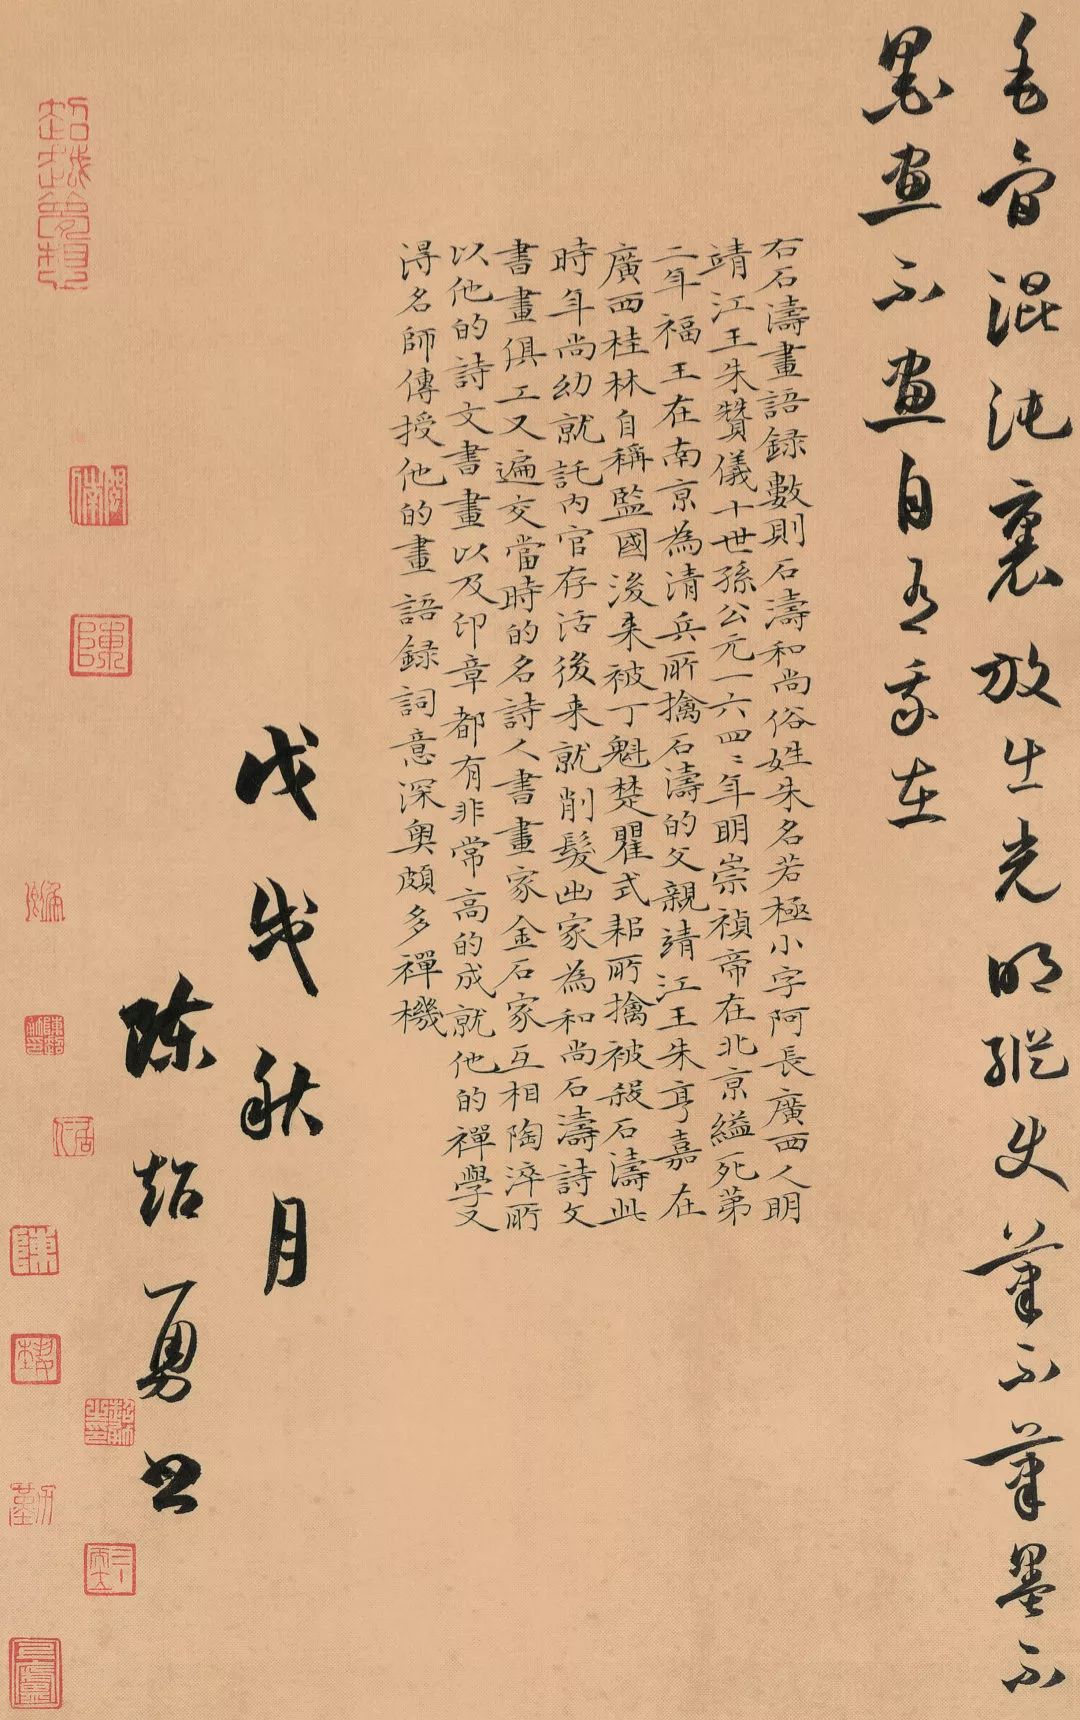 毛骨混沌裏放出光明縱使筆不筆墨不
墨畫不畫自有我在
右石濤畫語録數則石濤和尚俗姓朱名若極小字阿長廣西人明
靖江王朱贊儀十世孫公元一六四〻年明崇禎帝在北京縊死第
二年福王在南京為清兵所擒石濤的父親靖江王朱亨嘉在
廣西桂林自稱監國後来被丁魁楚瞿式耜所擒被殺石濤此
時年尚幼就託内官存活後来就削髮出家為和尚石濤詩文
書畫俱工又遍交當時的名詩人書畫家金石家互相陶淬所
以他的詩文書畫以及印章都有非常高的成就他的禪學又
得名師傳授他的畫語録詞意深奥頗多禪機
戊戌秋月
陈勇书
陳
陳